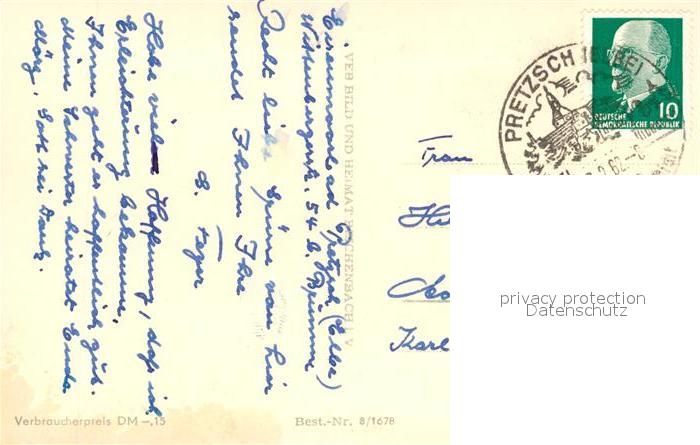 Eisenmoorbad Pretzsch (Elbe)
Wittenbergerstr. 54 b. Brumme
Recht liebe Grüße von hier
sendet Ihnen Ihre
E.
Habe viel Hoffnung, daß ich
Erleichterung bekomme.
Ihnen geht es hoffentlich gut.
Meine Schwester heiratet Ende
März. Gott sei Dank.
VEB BILD UND HEIMAT REICHENBACH I. V.
Frau
Karl
PRETZSCH (ELBE)
10
DEUTSCHE
DEMOKRATISCHE REPUBLIK
privacy protection
Datenschutz
Verbraucherpreis DM -,15
Best.-Nr. 8/1678